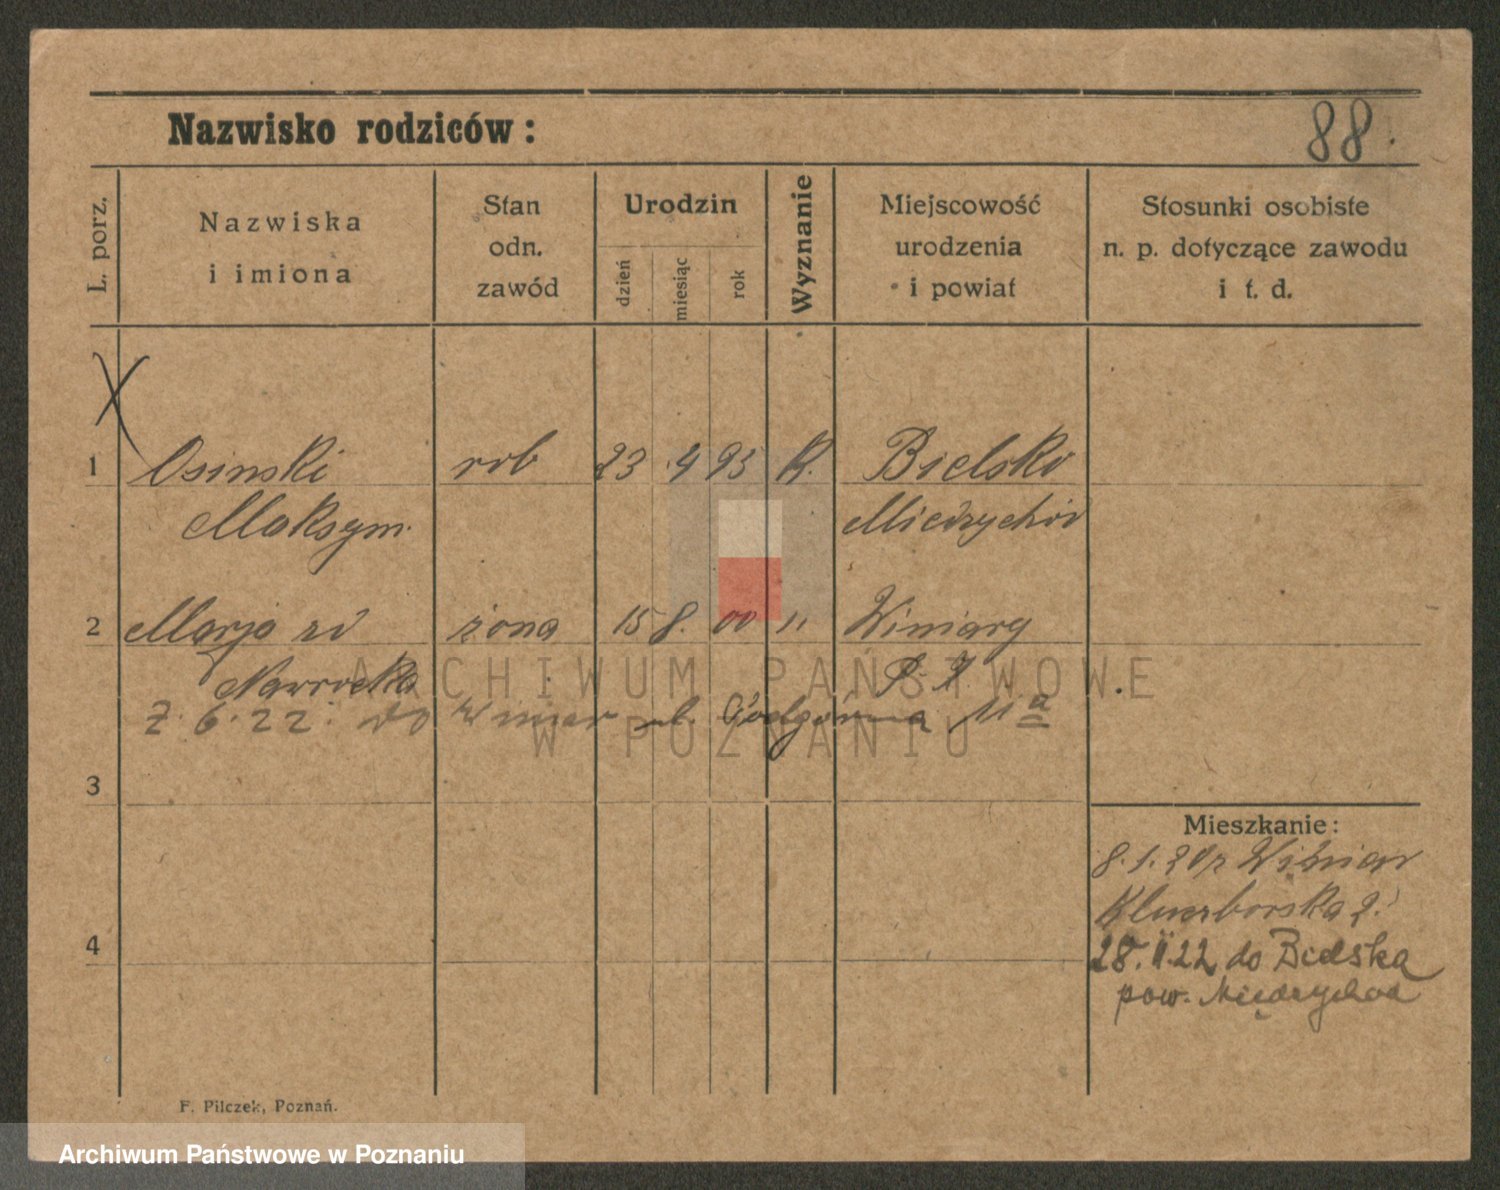 Nazwisko rodziców:
88.
L. porz.
Nazwiska
i imiona
Stan
odn.
zawód
Urodzin
dzień
miesiąc
rok
Wyznanie
Miejscowość
urodzenia
i powiat
Stosunki osobiste
n. p. dotyczące zawodu
i t. d.
1 Osinski rob 23 4 95 k. Bielsko
Maksym. Miedzychód
2 Marja zd żona 15 8. 00 " Winiary
Nawrocka P. Z.
2. 6. 22. do Winiar ul. Podgórna 11a
3
4
Mieszkanie:
8. 1. Winiar
Kluczborska 2.
28. II. 22 do Bielska
pow. Międzychód
F. Pilczek, Poznań.
ARCHIWUM PAŃSTWOWE
W POZNANIU
Archiwum Państwowe w Poznaniu